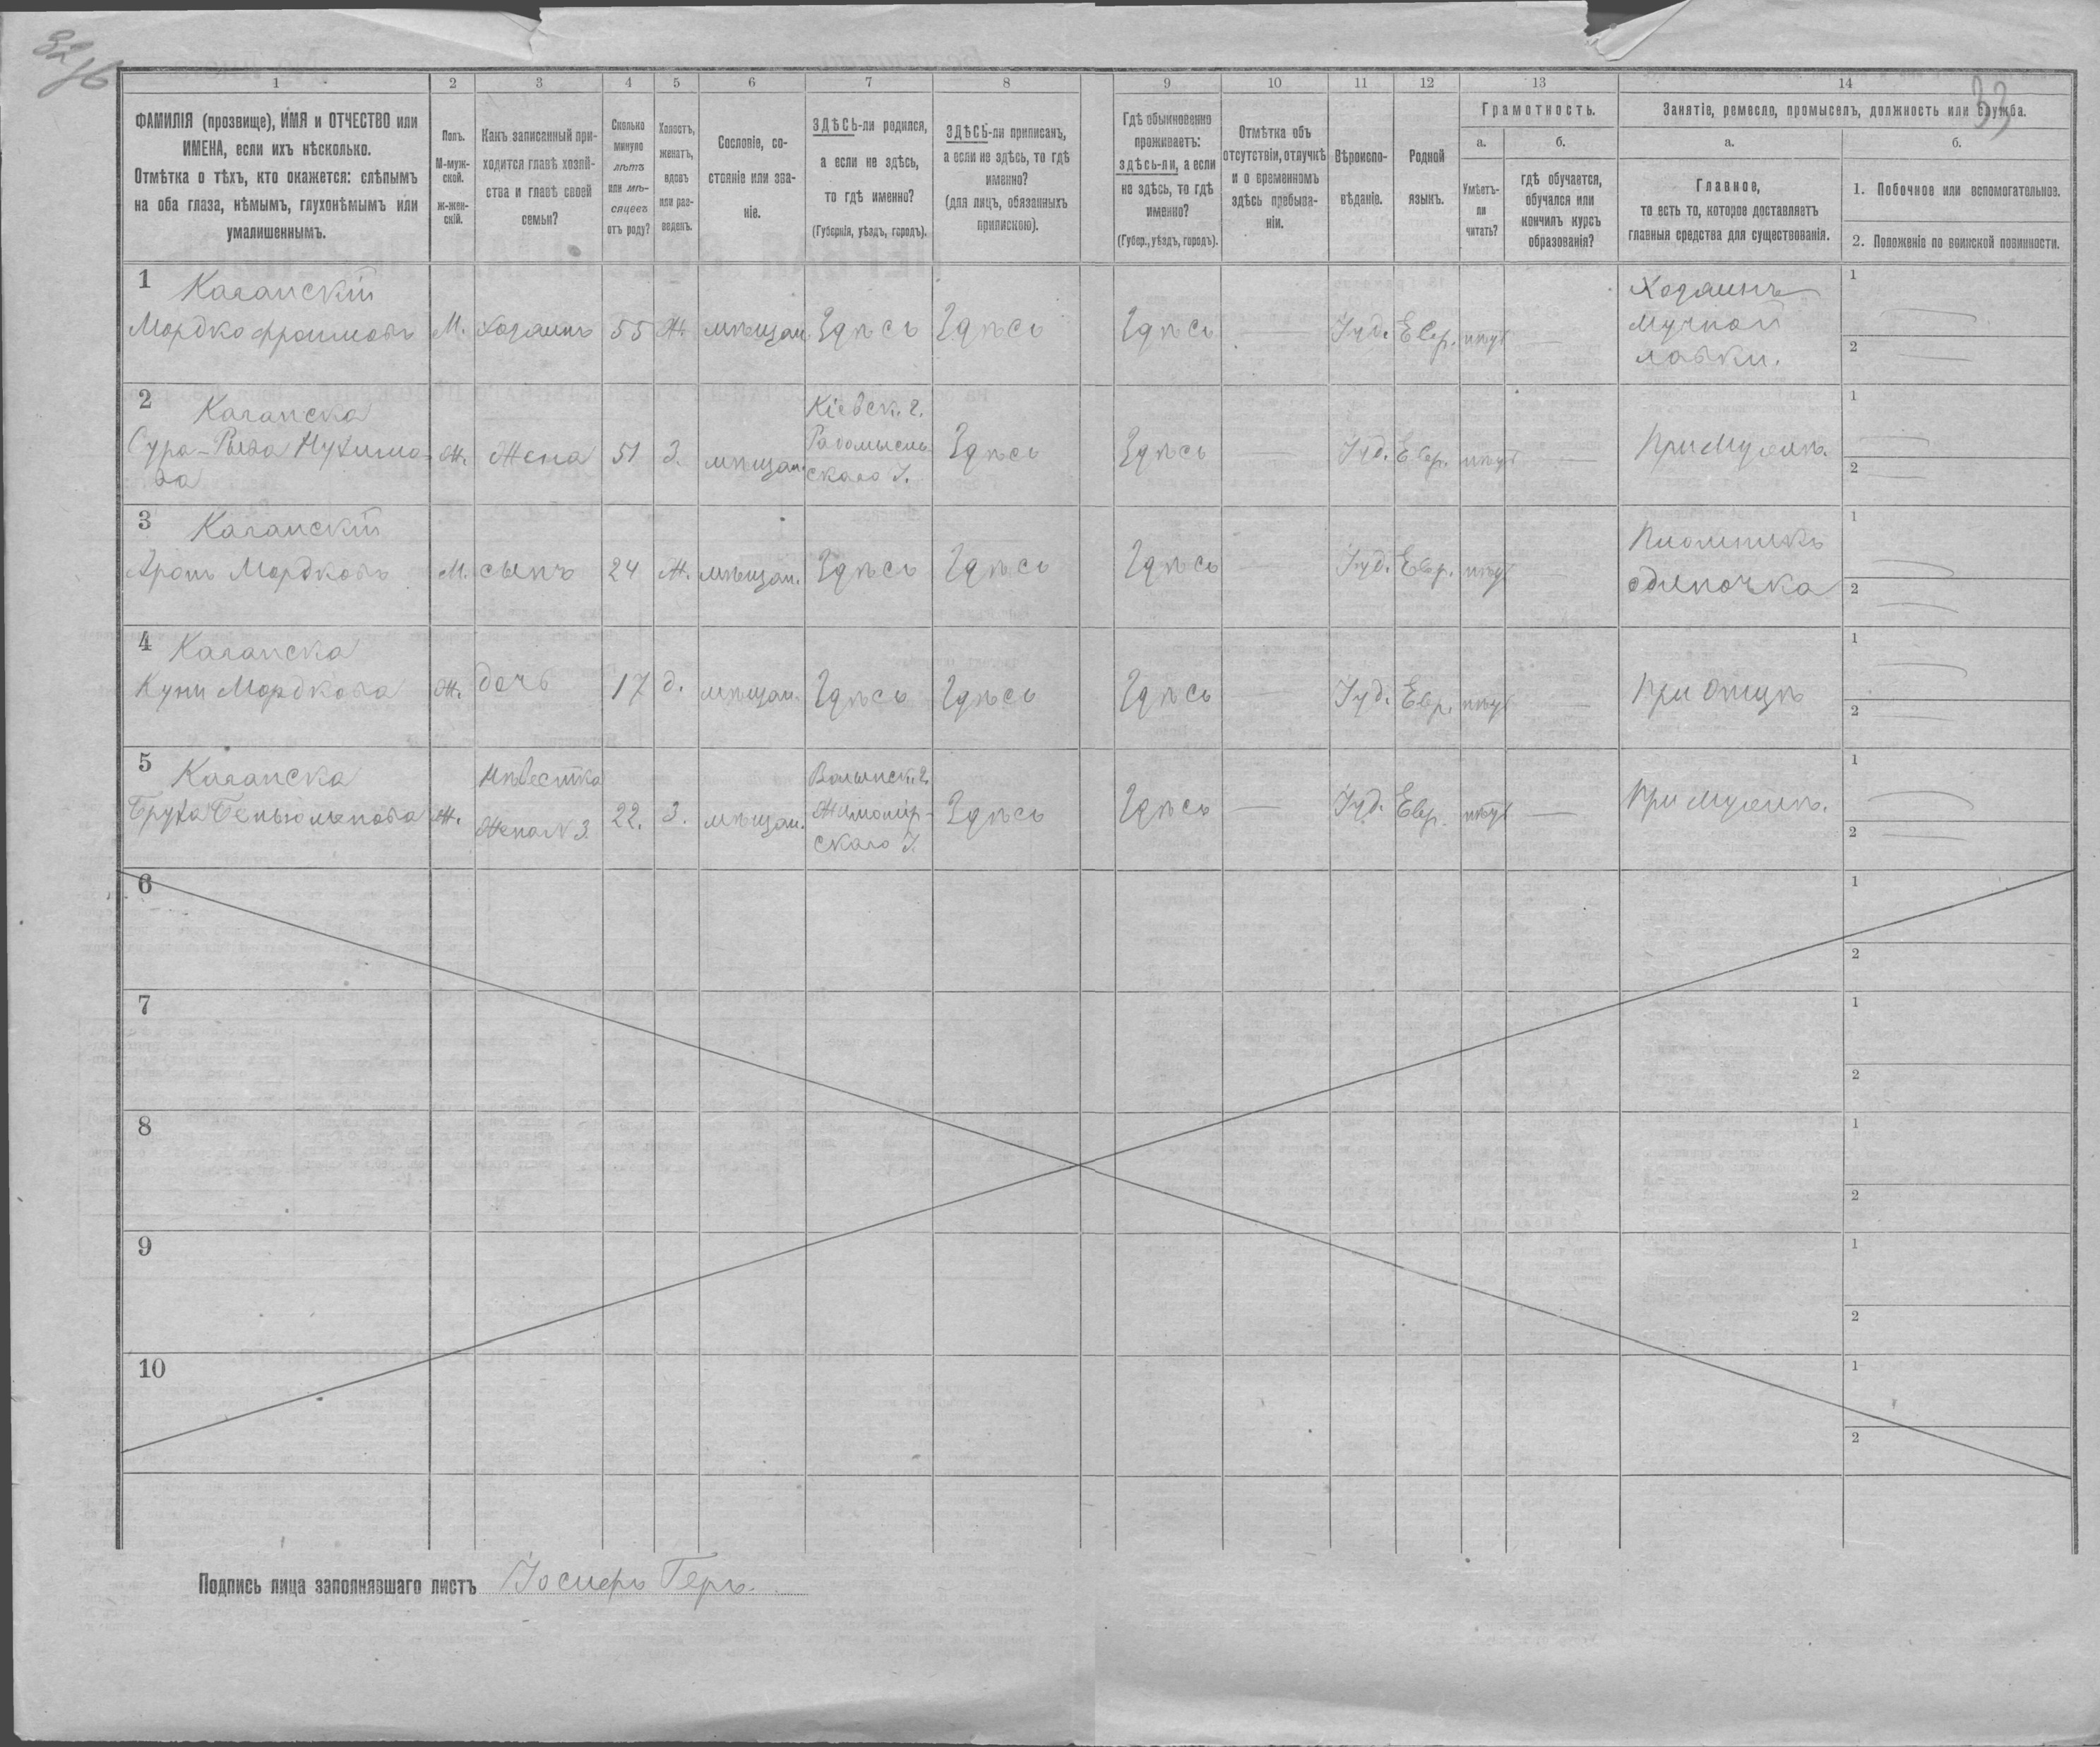 32
16
33
1 2 3 4 5 6 7 8 9 10 11 12 13 14
ФАМИЛІЯ (прозвище), ИМЯ и ОТЧЕСТВО или
ИМЕНА, если ихъ нѣсколько.
Отмѣтка о тѣхъ, кто окажется: слѣпымъ
на оба глаза, нѣмымъ, глухонѣмымъ или
умалишеннымъ.
Полъ.
М-муж-
ской.
ж-жен-
скій.
Какъ записанный при-
ходится главѣ хозяй-
ства и главѣ своей
семьи?
Сколько
минуло
лѣтъ
или мѣ-
сяцевъ
отъ роду?
Холостъ,
женатъ,
вдовъ
или раз-
веденъ.
Сословіе, со-
стояніе или зва-
ніе.
ЗДѢСЬ-ли родился,
а если не здѣсь,
то гдѣ именно?
(Губернія, уѣздъ, городъ).
ЗДѢСЬ-ли приписанъ,
а если не здѣсь, то гдѣ
именно?
(для лицъ, обязанныхъ
припискою).
Гдѣ обыкновенно
проживаетъ:
здѣсь-ли, а если
не здѣсь, то гдѣ
именно?
(Губер., уѣздъ, городъ).
Отмѣтка объ
отсутствіи, отлучкѣ
и о временномъ
здѣсь пребыва-
ніи.
Вѣроиспо-
вѣданіе.
Родной
языкъ.
Грамотность.
а.
Умѣетъ-
ли
читать?
б.
гдѣ обучается,
обучался или
кончилъ курсъ
образованія?
Занятіе, ремесло, промыселъ, должность или служба.
а.
Главное,
то есть то, которое доставляетъ
главныя средства для существованія.
б.
1. Побочное или вспомогательное.
2. Положеніе по воинской повинности.
1
Каганскій
Мордко Фроимовъ
М.
хозяинъ
55
Ж.
мѣщан.
Здѣсь
Здѣсь
Здѣсь
—
Іуд.
Евр.
нѣтъ
—
Хозяинъ
мучной
лавки.
1 —
2 —
2
Каганска
Сура-Рыва Нухимо-
ва
Ж.
Жена
51
З.
мѣщан.
Кіевск. г.
Радомысль-
скаго У.
Здѣсь
Здѣсь
—
Іуд.
Евр.
нѣтъ
—
При Мужѣ.
1 —
2 —
3
Каганскій
Аронъ Мордковъ
М.
сынъ
24
Ж.
мѣщан.
Здѣсь
Здѣсь
Здѣсь
—
Іуд.
Евр.
нѣтъ
—
одиночка
1 —
2 —
4
Каганска
Куни Мордкова
Ж.
дочь
17
д.
мѣщан.
Здѣсь
Здѣсь
Здѣсь
—
Іуд.
Евр.
нѣтъ
—
При Отцѣ
1 —
2 —
5
Каганска
Бруха Беньюминова
Ж.
Невестка
Жена N 3.
22.
З.
мѣщан.
Волынск. г.
Житомір-
скаго У.
Здѣсь
Здѣсь
—
Іуд.
Евр.
нѣтъ
—
При Мужѣ.
1 —
2 —
6
1
2
7
1
2
8
1
2
9
1
2
10
1
2
Подпись лица заполнявшаго листъ Іосиеръ Геръ.